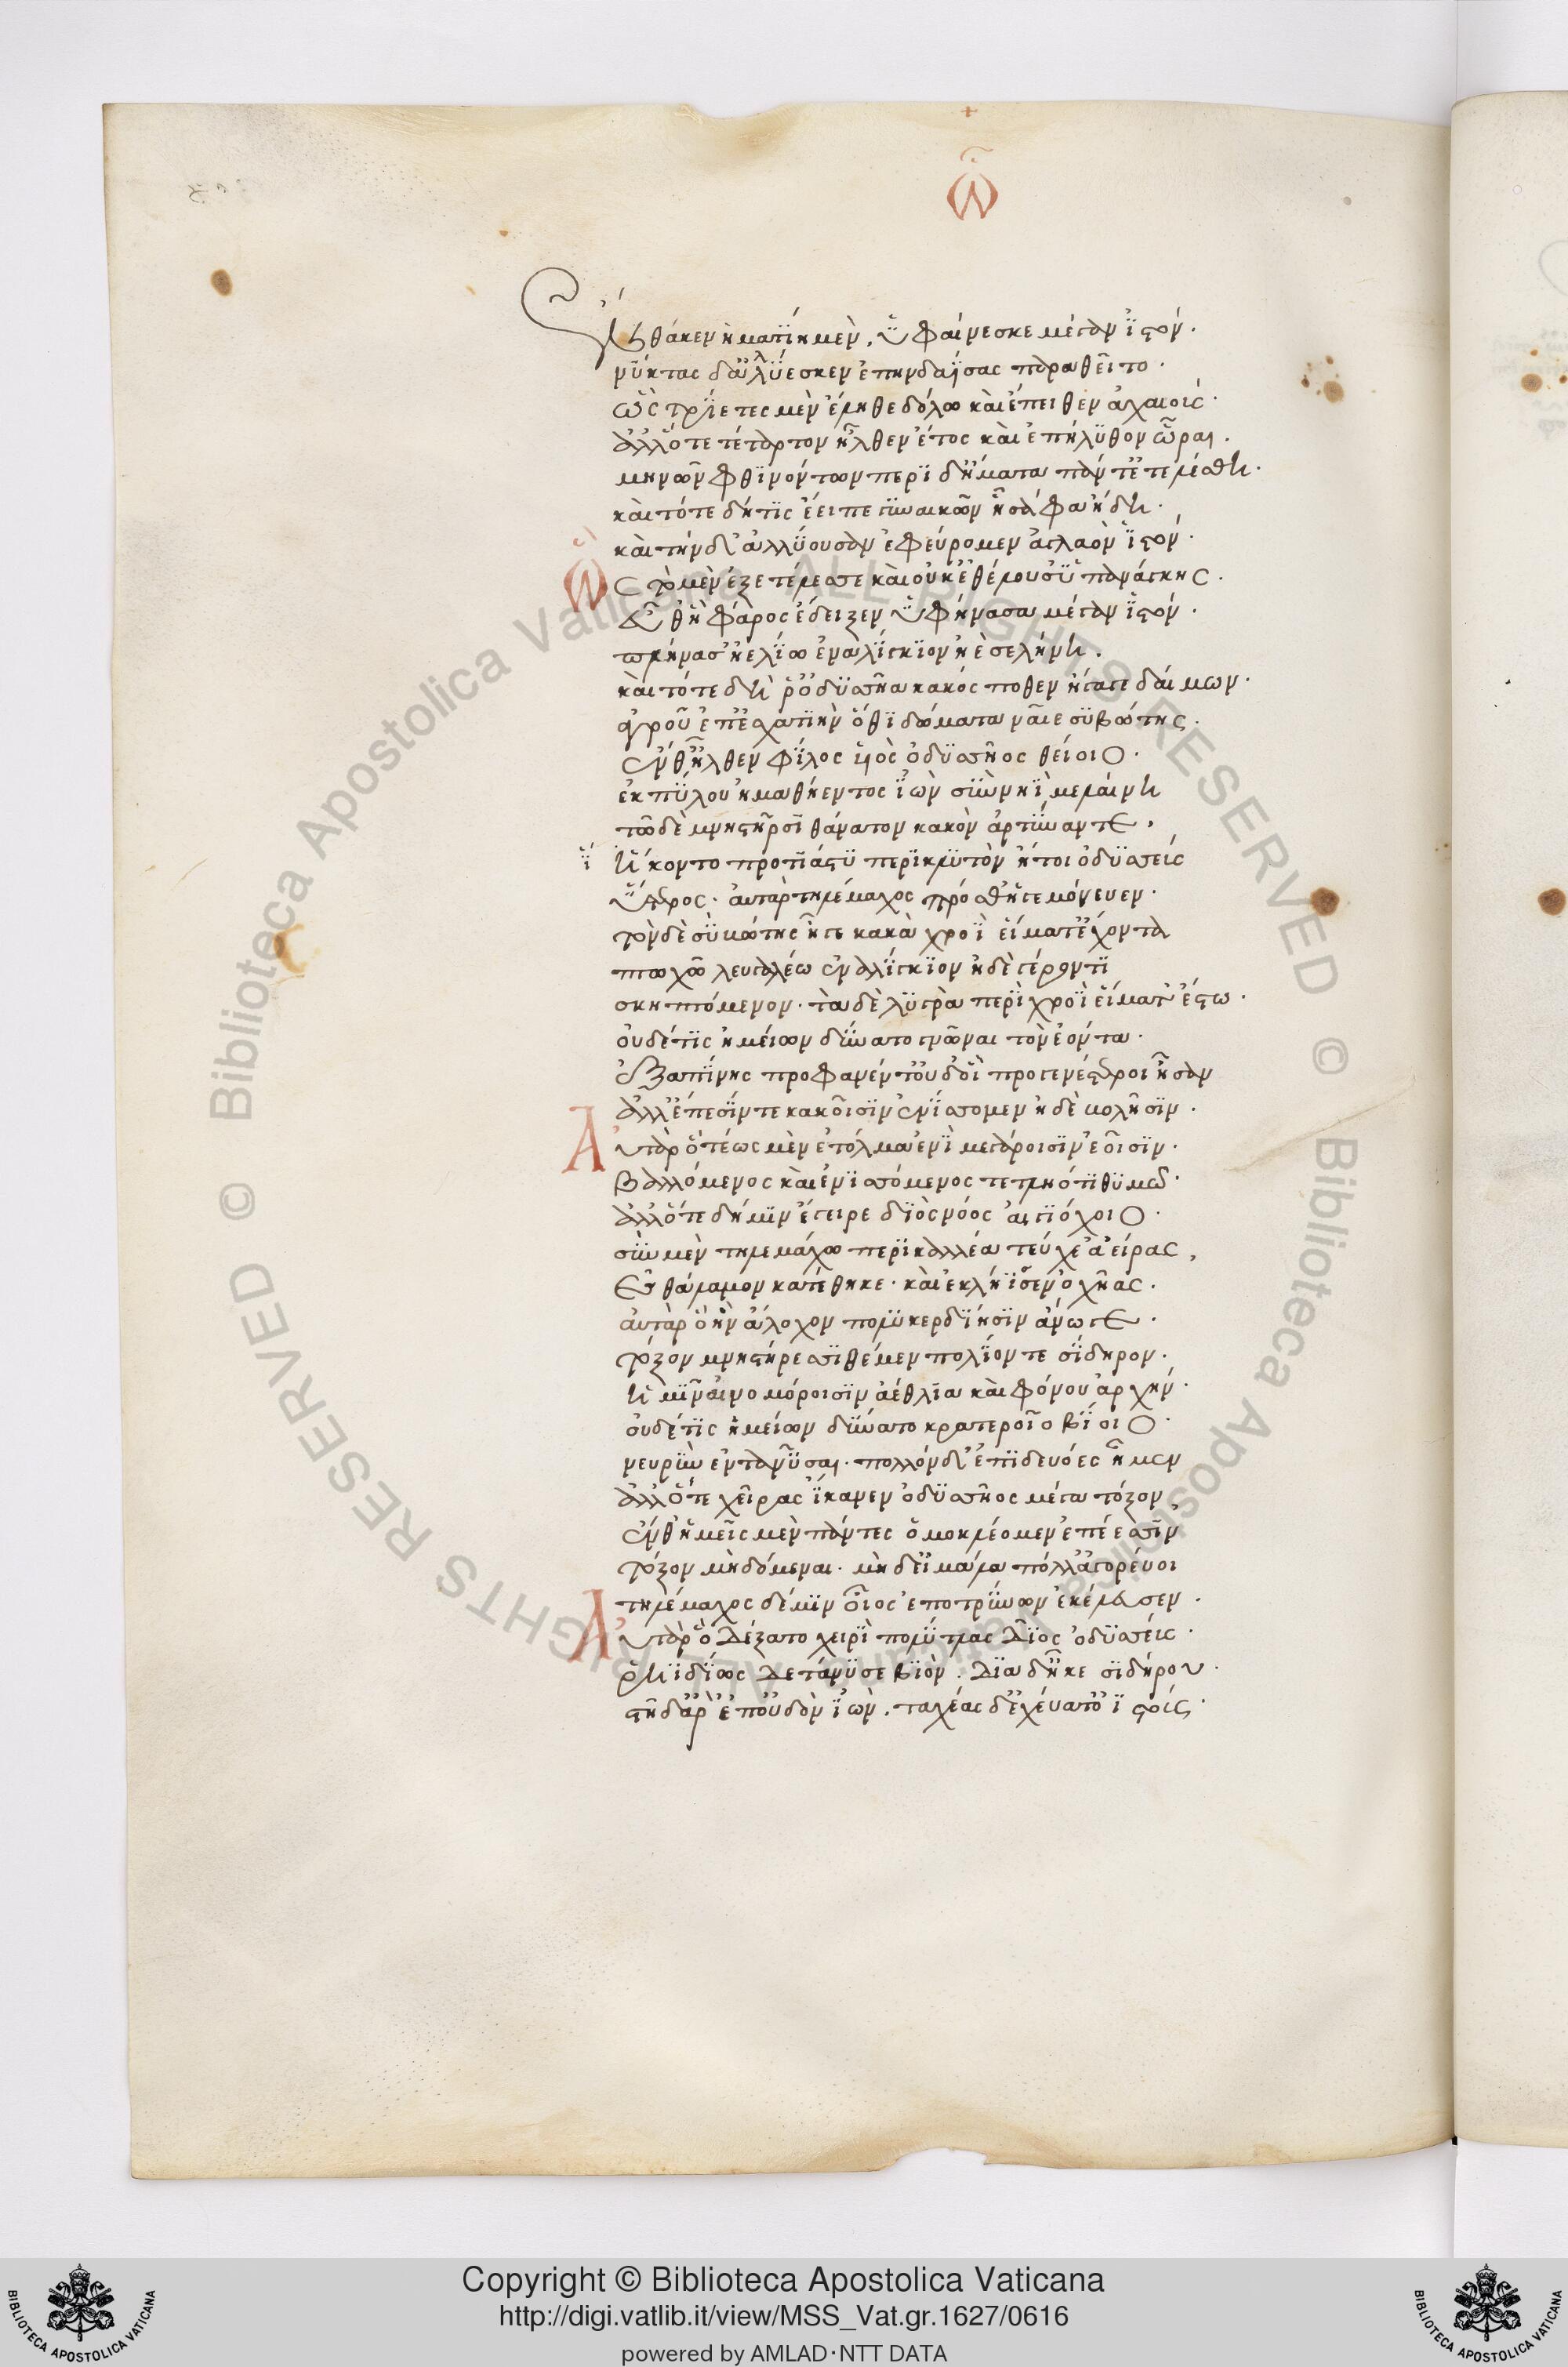 Ὦ
Ἔνθακεν ἠματίη μὲν, ὑφαίνεσκε μέγαν ἱστόν.
νύκτας δ' ἀλλύεσκεν ἐπὴν δαΐδας παραθεῖτο.
ὣς τρίετες μὲν ἔληθε δόλω καὶ ἔπειθεν ἀχαιούς.
ἀλλ' ὅτε τέταρτον ἦλθεν ἔτος καὶ ἐπήλυθον ὧραι.
μηνῶν φθινόντων περὶ δ' ἤματα πάντ' ἐτελέσθη.
καὶ τότε δή τις ἔειπε γυναικῶν ἣ σάφα ἤδη.
καὶ τήνδ' ἀλλύουσαν ἐφεύρομεν ἀγλαὸν ἱστόν.
Ὣς τὸ μὲν ἐξετέλεσσε καὶ οὐκ ἐθέλουσ' ὑπ' ἀνάγκης.
εὖθ' ἣ φᾶρος ἔδειξεν ὑφήνασα μέγαν ἱστόν.
πλήνασ' ἠελίω ἐναλίγκιον ἠὲ σελήνη.
καὶ τότε δή ῥ' ὀδυσῆα κακός ποθεν ἤγαγε δαίμων.
ἀγροῦ ἐπ' ἐσχατιὴν ὅθι δώματα ναῖε συβώτης.
ἔνθ' ἦλθεν φίλος υἱὸς ὀδυσσῆος θείοιο.
ἐκ πύλου ἠμαθήεντος ἰὼν σὺν νηὶ μελαίνη
τὼ δὲ μνηστῆρσι θάνατον κακὸν ἀρτύναντε.
ἵ
ἵκοντο προτὶ ἄστυ περικλυτὸν ἤτοι ὀδυσσεὺς
ὕστερος. αὐτὰρ τηλέμαχος πρόσθ' ἡγεμόνευεν.
τὸν δὲ συβώτης ἦγε κακὰ χροῒ εἵματ' ἔχοντα
πτωχῶ λευγαλέω ἐναλίγκιον ἠδὲ γέροντι
σκηπτόμενον. τὰ δὲ λυγρὰ περὶ χροῒ εἵματ' ἕστο.
οὐδέ τις ἡμείων δύνατο γνῶναι τὸν ἐόντα.
ἐξαπίνης προφανέντ' οὐδ' οἳ προγενέστεροι ἦσαν
ἀλλ' ἔπεσίν τε κακοῖσιν ἐνίσσομεν ἠδὲ βολῆσιν.
Αὐτὰρ ὃ τέως μὲν ἐτόλμα ἐνὶ μεγάροισιν ἑοῖσιν.
βαλλόμενος καὶ ἐνισσόμενος τετληότι θυμῶ.
ἀλλ' ὅτε δή μιν ἔγειρε διὸς νόος αἰγιόχοιο.
σὺν μὲν τηλεμάχω περικαλλέα τεύχε' ἀείρας,
ἐς θάλαμον κατέθηκε. καὶ ἐκλήϊσεν ὀχῆας.
αὐτὰρ ὃ ἣν ἄλοχον πολυκερδίησιν ἄνωγε.
τόξον μνηστήρεσσι θέμεν πολιόν τε σίδηρον.
ἡμῖν αἰνομόροισιν ἀέθλια καὶ φόνου ἀρχήν.
οὐδέ τις ἡμείων δύνατο κρατεροῖο βιοῖο.
νευρὴν ἐντανύσαι. πολλὸν δ' ἐπιδευέες ἦμεν
ἀλλ' ὅτε χεῖρας ἵκανεν ὀδυσσῆος μέγα τόξον
ἔνθ' ἡμεῖς μὲν πάντες ὁμοκλέομεν ἐπέεσσιν
τόξον μὴ δόμεναι. μὴδ' εἰ μάλα πόλλ' ἀγορεύοι
τηλέμαχος δέ μιν οἶος ἐποτρύνων ἐκέλευσεν.
Αὐτὰρ ὃ δέξατο χειρὶ πολύτλας δῖος ὀδυσσεύς.
ῥηϊδίως δ' ἐτάνυσε βιόν. διὰ δ' ἧκε σιδήρου.
στῆ δ' ἄρ' ἐπ' οὐδὸν ἰὼν. ταχέας δ' ἐχεύατ' ὀϊστούς.
© Biblioteca Apostolica Vaticana ALL RIGHTS RESERVED © Biblioteca Apostolica Vaticana ALL RIGHTS RESERVED
Copyright © Biblioteca Apostolica Vaticana
http://digi.vatlib.it/view/MSS_Vat.gr.1627/0616
powered by AMLAD·NTT DATA
BIBLIOTECA APOSTOLICA VATICANA
BIBLIOTECA APOSTOLICA VATICANA